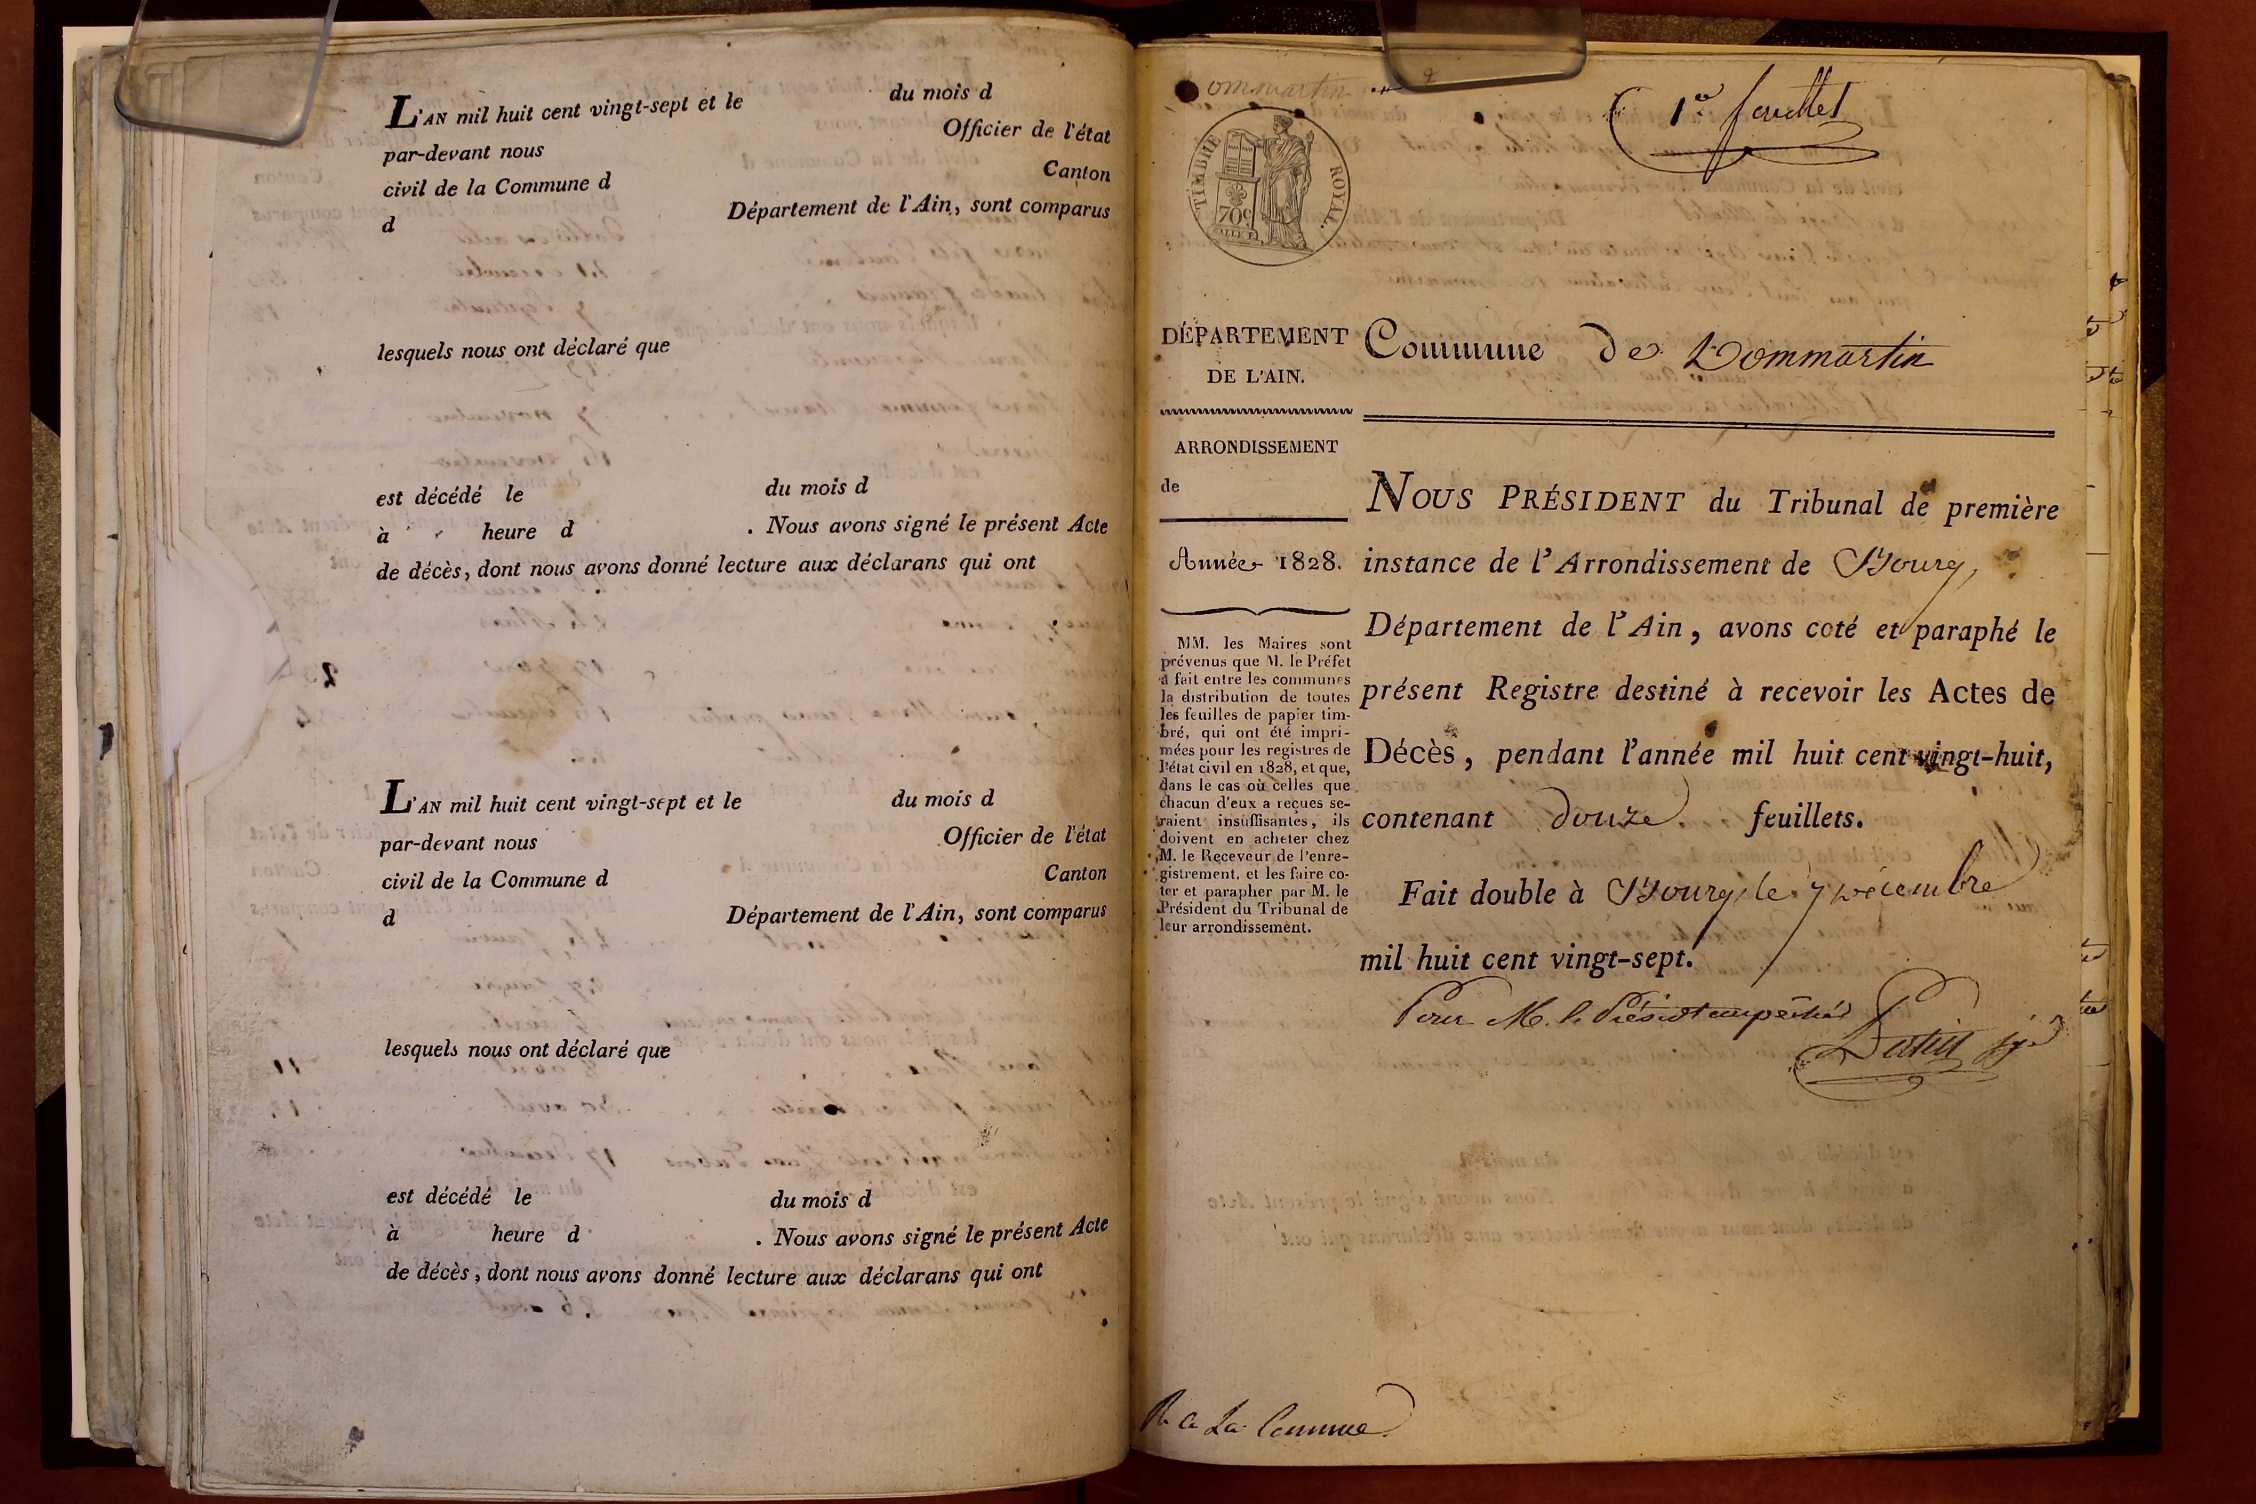 L'AN mil huit cent vingt-sept et le du mois d
par-devant nous Officier de l'état
civil de la Commune d Canton
d Département de l'Ain, sont comparus
lesquels nous ont déclaré que
est décédé le du mois d
à heure d . Nous avons signé le présent Acte
de décès, dont nous avons donné lecture aux déclarans qui ont
L'AN mil huit cent vingt-sept et le du mois d
par-devant nous Officier de l'état
civil de la Commune d Canton
d Département de l'Ain, sont comparus
lesquels nous ont déclaré que
est décédé le du mois d
à heure d . Nous avons signé le présent Acte
de décès, dont nous avons donné lecture aux déclarans qui ont
ommartin
1er feuillet
TIMBRE ROYAL
70c
DÉPARTEMENT
DE L'AIN.
ARRONDISSEMENT
de
Année 1828.
MM. les Maires sont
prévenus que M. le Préfet
a fait entre les communes
la distribution de toutes
les feuilles de papier tim-
bré, qui ont été impri-
mées pour les registres de
l'état civil en 1828, et que,
dans le cas où celles que
chacun d'eux a reçues se-
raient insuffisantes, ils
doivent en acheter chez
M. le Receveur de l'enre-
gistrement, et les faire co-
ter et parapher par M. le
Président du Tribunal de
leur arrondissement.
Commune de Dommartin
NOUS PRÉSIDENT du Tribunal de première
instance de l'Arrondissement de Bourg,
Département de l'Ain, avons coté et paraphé le
présent Registre destiné à recevoir les Actes de
Décès, pendant l'année mil huit cent vingt-huit,
contenant douze feuillets.
Fait double à Bourg, le 7 décembre
mil huit cent vingt-sept.
Pour M. le Présidt empêché
La Commune